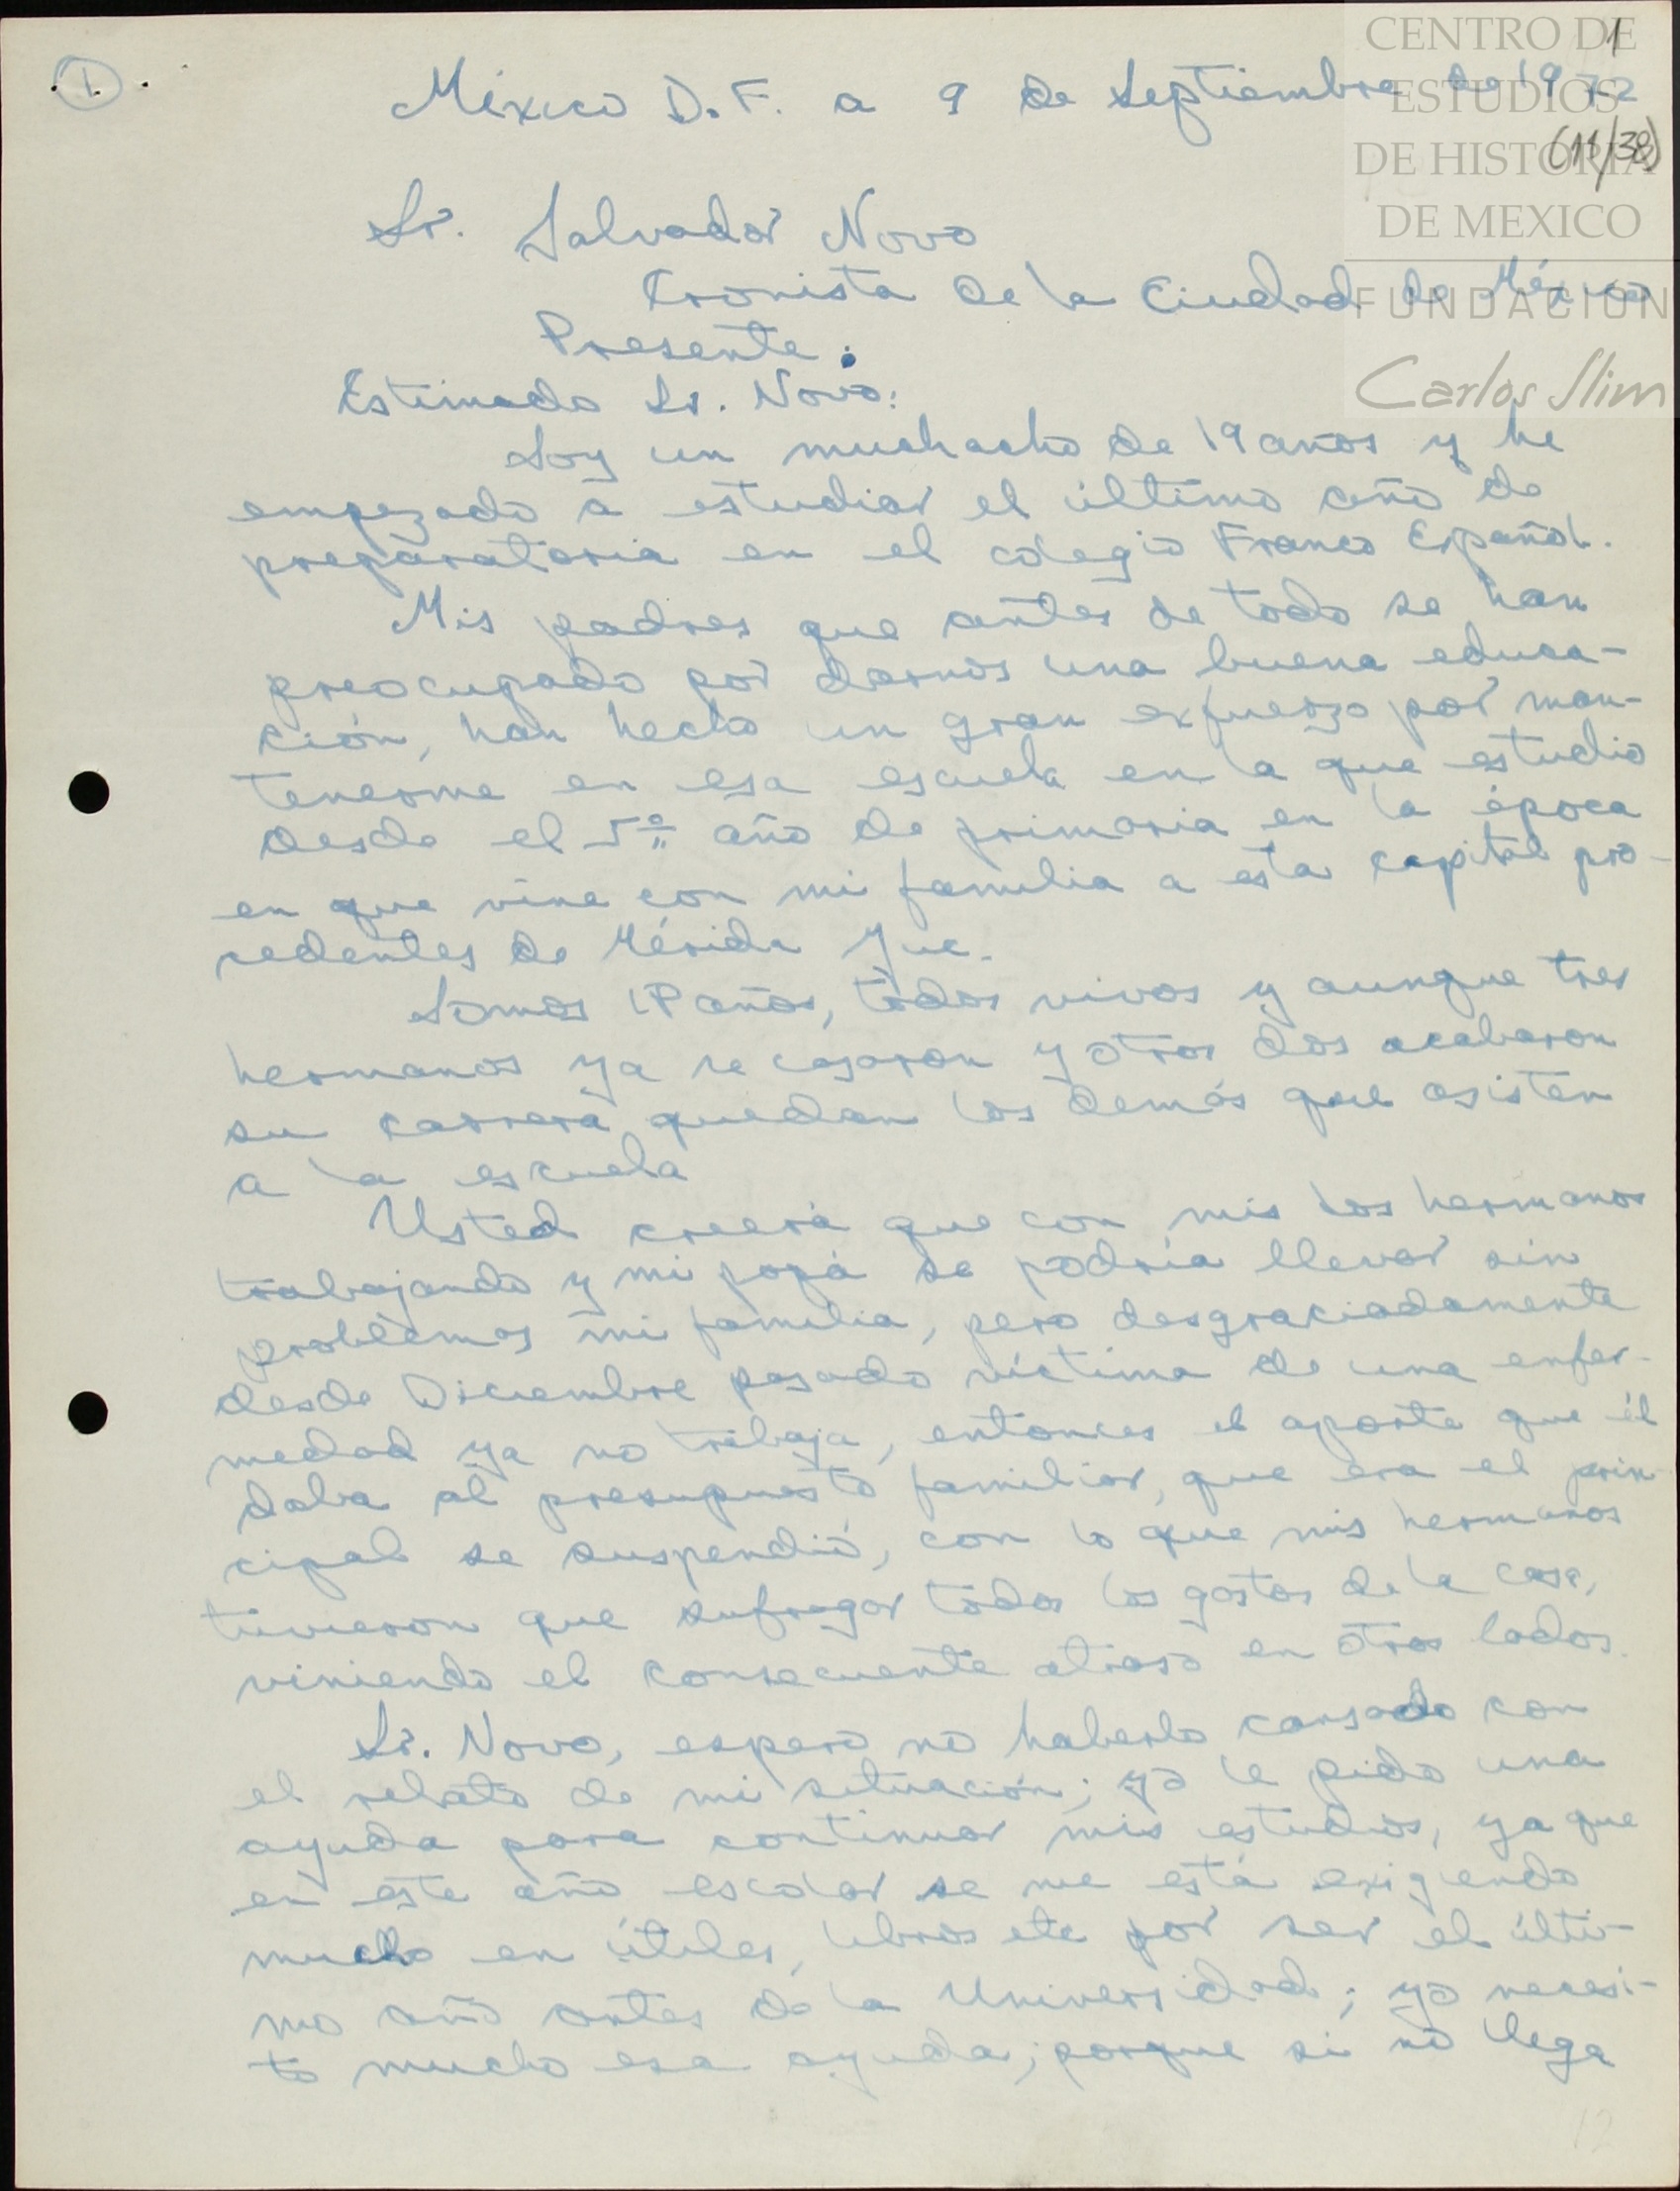 1
CENTRO DE
ESTUDIOS
DE HISTORIA
DE MEXICO
FUNDACIÓN
Carlos Slim
1.
México D.F. a 9 de Septiembre de 1972
(11/38)
Sr. Salvador Novo
Cronista de la Ciudad de México
Presente.
Estimado Sr. Novo:
Soy un muchacho de 19 años y he
empezado a estudiar el último año de
preparatoria en el colegio Franco Español.
Mis padres que antes de todo se han
preocupado por darnos una buena educa-
ción, han hecho un gran esfuerzo por man-
tenerme en esa escuela en la que estudio
desde el 5º año de primaria en la época
en que vine con mi familia a esta capital pro-
cedentes de Mérida Yuc.
Somos años, todos vivos y aunque tres
hermanos ya se casaron y otros dos acabaron
su carrera quedan los demás que asisten
a la escuela
Usted creerá que con mis dos hermanos
trabajando y mi papá se podría llevar sin
problemas mi familia, pero desgraciadamente
desde Diciembre pasado víctima de una enfer-
medad ya no trabaja, entonces el aporte que él
daba al presupuesto familiar, que era el prin-
cipal se suspendió, con lo que mis hermanos
tuvieron que sufragar todos los gastos de la casa,
viniendo el consecuente atraso en otros lados.
Sr. Novo, espero no haberlo cansado con
el relato de mi situación; yo le pido una
ayuda para continuar mis estudios, ya que
en este año escolar se me está exigiendo
mucho en útiles, libros etc por ser el últi-
mo año antes de la Universidad; yo necesi-
to mucho esa ayuda; porque si no llega
12